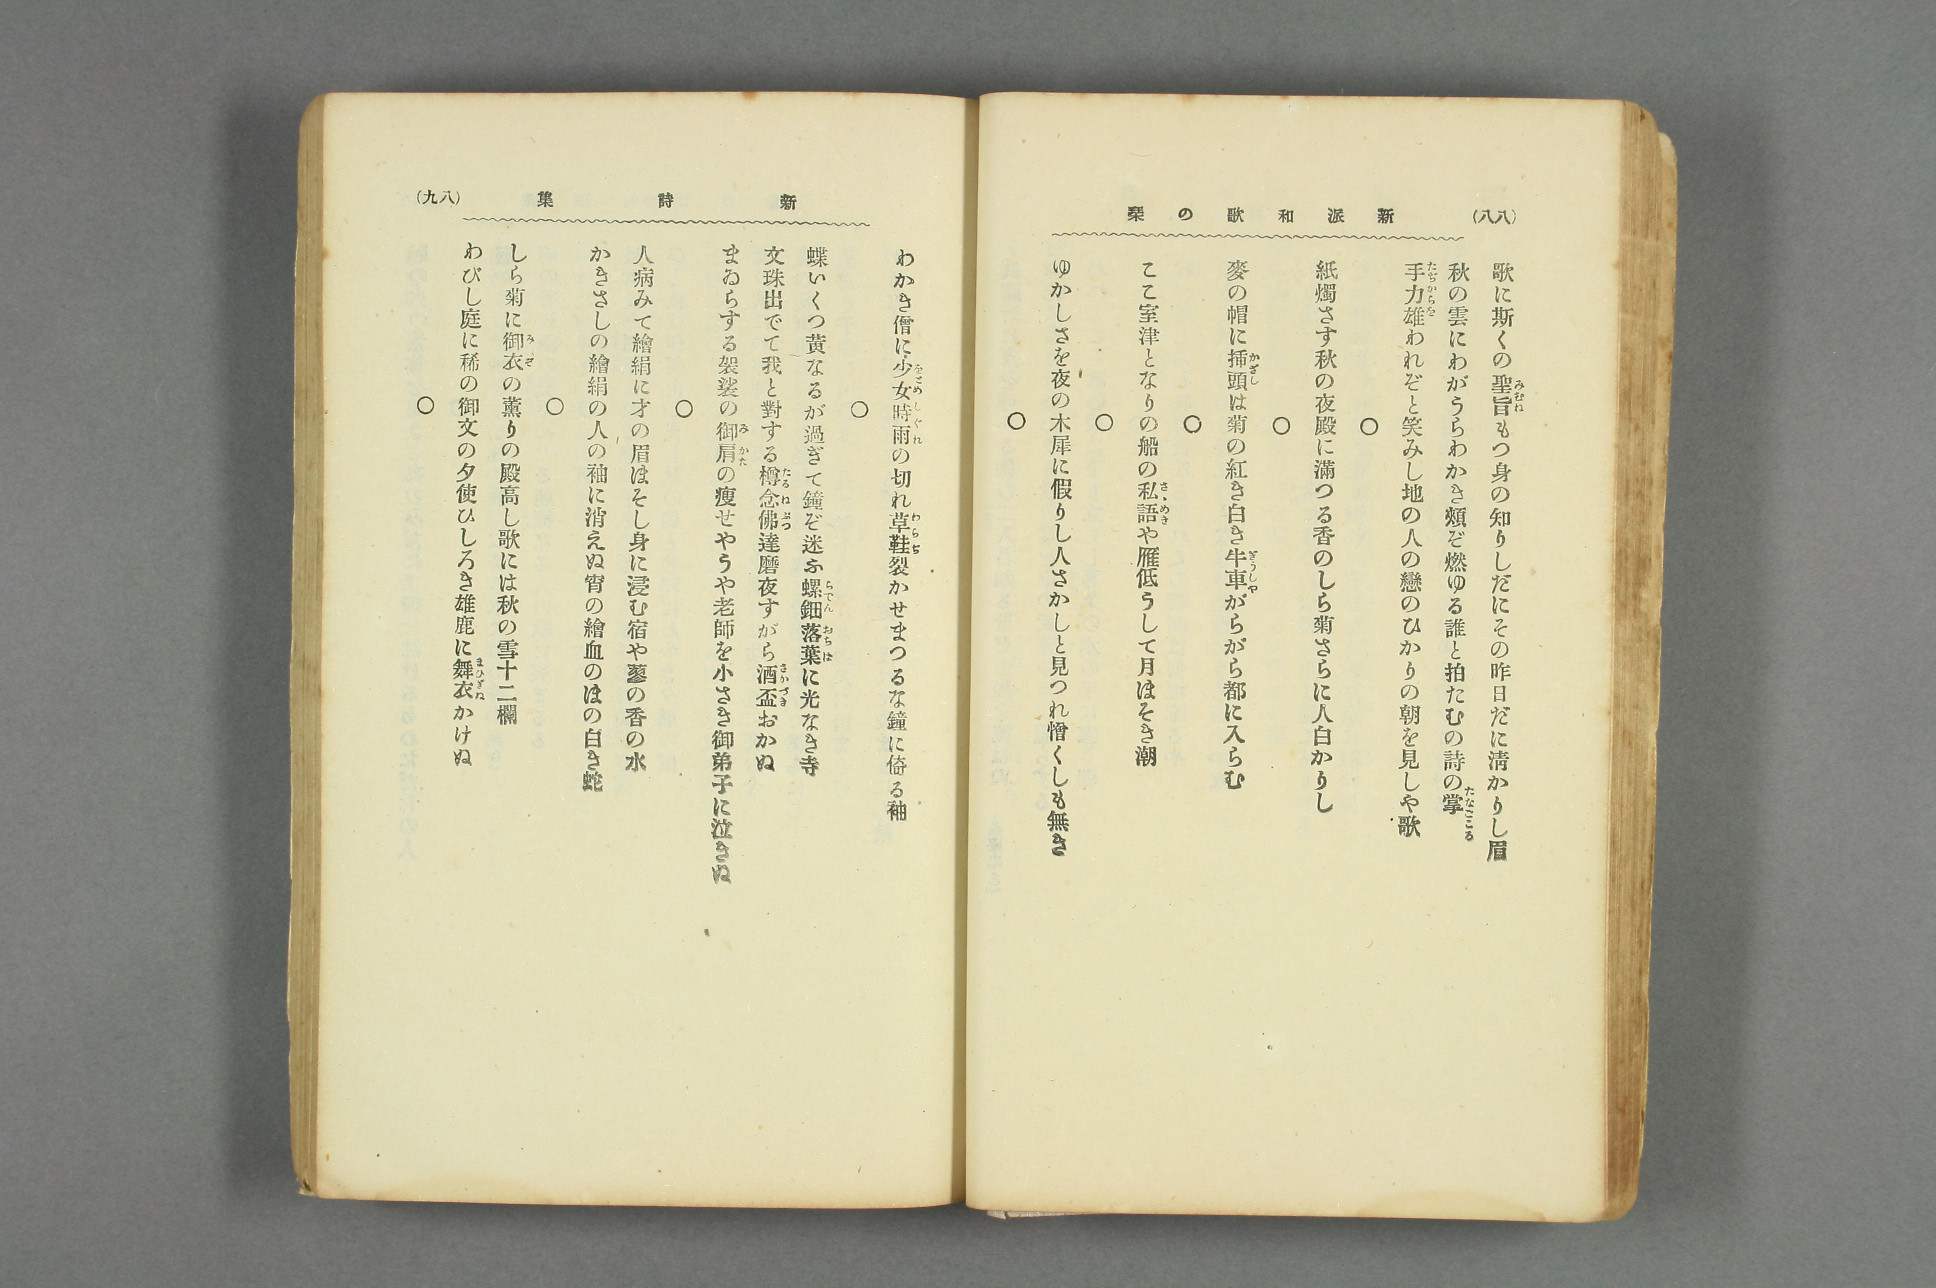 (八八)
新派和歌の栞
歌に斯くの聖旨もつ身の知りしだにその昨日だに淸かりし眉
秋の雲にわがうらわかき頰ぞ燃ゆる誰と拍たむの詩の掌
手力雄われぞと笑みし地の人の戀のひかりの朝を見しや歌
○
紙燭さす秋の夜殿に滿つる香のしら菊さらに人白かりし
○
麥の帽に揷頭は菊の紅き白き牛車がらがら都に入らむ
○
ここ室津となりの船の私語や雁低うして月ほそき潮
○
ゆかしさを夜の木犀に假りし人さかしと見つれ憎くしも無き
○
新詩集
(八九)
わかき僧に少女時雨の切れ草鞋裂かせまつるな鐘に倚る袖
○
蝶いくつ黄なるが過ぎて鐘ぞ迷ふ螺鈿落葉に光なき寺
文珠出でて我と對する樽念佛達磨夜すがら酒盃おかぬ
まゐらする袈裟の御肩の瘦せやうや老師を小さき御弟子に泣きぬ
○
人病みて繪絹に才の眉ほそし身に浸む宿や蓼の香の水
かきさしの繪絹の人の袖に消えぬ宵の繪血のほの白き蛇
○
しら菊に御衣の薰りの殿高し歌には秋の雪十二欄
わびし庭に稀の御文の夕使ひしろき雄鹿に舞衣かけぬ
○